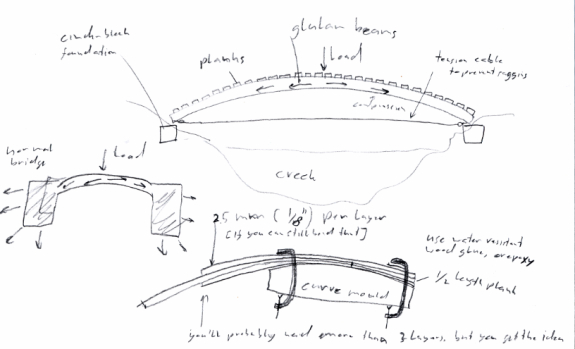 cinder-block
foundation
planks
glulam beams
load
tension cable
to prevent sagging
compression
creek
normal
bridge
load
25 mm (1/8") per layer
[if you can still bend that]
use water resistant
wood glue, or epoxy
1/2 length
plank
curve mould
you'll probably need more than 3 layers, but you get the idea